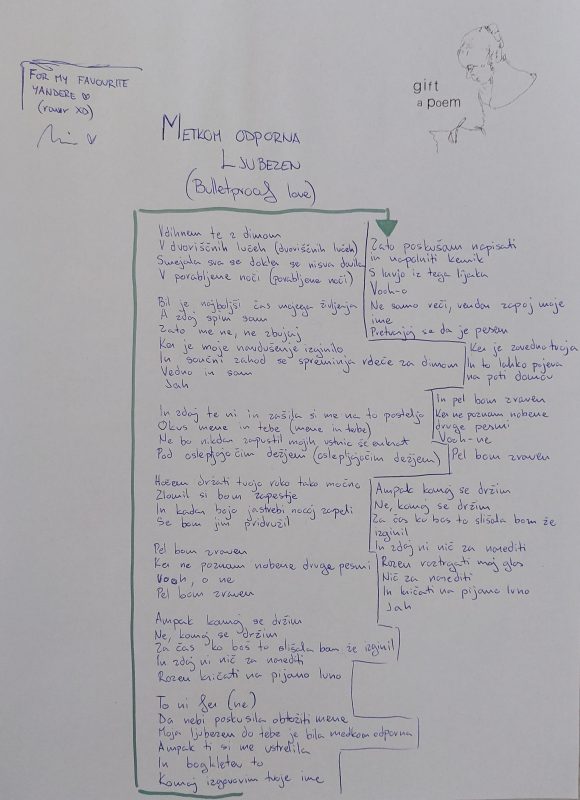 FOR MY FAVOURITE
YANDERE ♡
(rawr XD)
gift
a poem
METKOM ODPORNA
LJUBEZEN
(Bulletproof love)
Vdihnem te z dimom
V dvoriščnih lučeh (dvoriščnih lučeh)
Smejala sva se dokler se nisva davila
V porabljene noči (porabljene noči)
Bil je najboljši čas mojega življenja
A zdaj spim sam
Zato me ne, ne zbujaj
Ker je moje navdušenje izginilo
In sončni zahod se spreminja rdeče za dimom
Vedno in sam
Jah
In zdaj te ni in zašila si me na to posteljo
Okus mene in tebe (mene in tebe)
Ne bo nikdar zapustil mojih ustnic še enkrat
Pod oslepljajočim dežjem (oslepljajočim dežjem)
Hočem držati tvojo roko tako močno
Zlomil si bom zapestje
In kadar bojo jastrebi nocoj zapeli
Se bom jim pridružil
Pel bom zraven
Ker ne poznam nobene druge pesmi
Vooh, o ne
Pel bom zraven
Ampak komaj se držim
Ne, komaj se držim
Za čas ko boš to slišala bom že izginil
In zdaj ni nič za narediti
Razen kričati na pijano luno
To ni fer (ne)
Da nebi poskusila obtožiti mene
Moja ljubezen do tebe je bila metkom odporna
Ampak ti si me ustrelila
In bogkletev to
Komaj izgovorim tvoje ime
Zato poskušam napisati
in napolniti kemik
S krvjo iz tega lijaka
Vooh-o
Ne samo reči, vendar zapoj moje
ime
Pretvarjaj se da je pesem
Ker je zavedno tvoja
In to lahko pojeva
na poti domov
In pel bom zraven
Ker ne poznam nobene
druge pesmi
Vooh-ne
Pel bom zraven
Ampak komaj se držim
Ne, komaj se držim
Za čas ko boš to slišala bom že
izginil
In zdaj ni nič za narediti
Razen raztrgati moj glas
Nič za narediti
In kričati na pijano luno
Jah